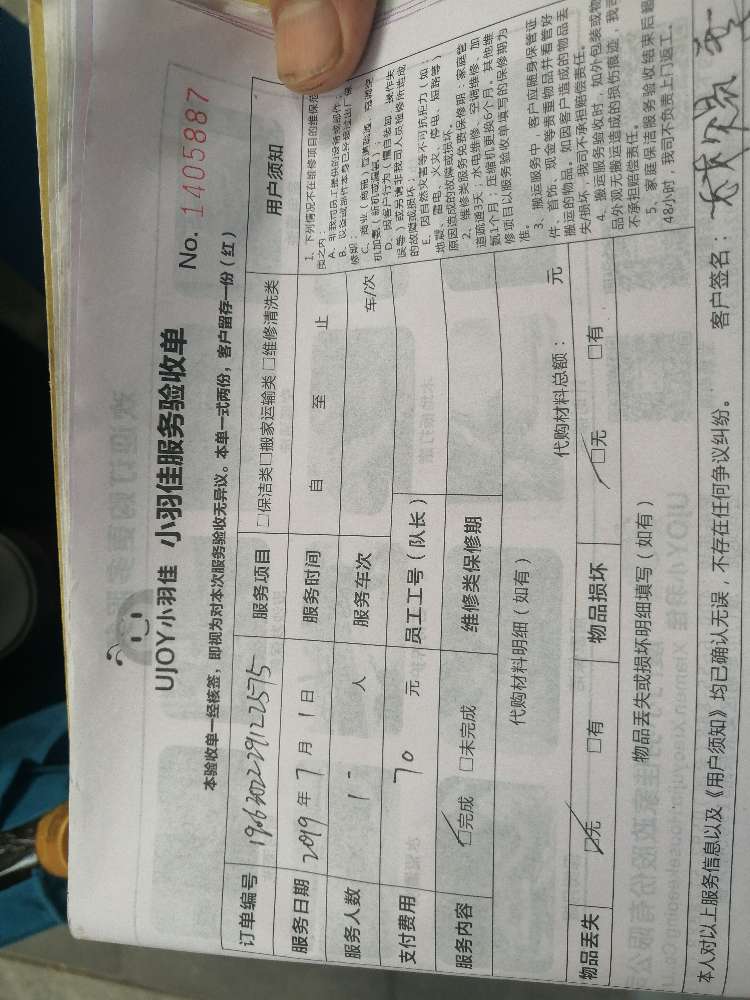 UJOY小羽佳 小羽佳服务验收单
No. 1405887
本验收单一经核签，即视为对本次服务验收无异议。本单一式两份，客户留存一份（红）
订单编号 1906302229122575 服务项目 □保洁类□搬家运输类 □维修清洗类 用户须知
服务日期 2019 年 7 月 1 日 服务时间 自 至 止
服务人数 1 人 服务车次 车/次
支付费用 70 元 员工工号（队长）
服务内容 □完成 □未完成 维修类保修期
代购材料明细（如有） 代购材料总额： 元
物品丢失 □无 □有 物品损坏 □无 □有
物品丢失或损坏明细填写（如有）
1、下列情况不在维修项目的维保范
围之内：
A、非我司员工提供的设备或部件；
D、因客户行为（擅自装卸、操作失
误等）或另请非我司人员检修所造成
的故障或损坏；
E、因自然灾害等不可抗拒力（如：
地震、雷电、火灾、停电、短路等）
原因造成的故障或损坏。
2、维修类服务免费保修期：家庭管
道疏通3天；水电维修、空调维修、加
氨1个月；压缩机更换6个月。其他维
修项目以服务验收单填写的保修期为
准。
3、搬运服务中，客户应随身保管证
件、首饰、现金等贵重物品并看管好
搬运的物品。如因客户造成的物品丢
失/损坏，我司不承担赔偿责任。
4、搬运服务验收时，如外包装或物
品外观无搬运造成的损伤痕迹，我司
不承担赔偿责任。
5、家庭保洁服务验收结束后超
48小时，我司不负责上门返工。
本人对以上服务信息以及《用户须知》均已确认无误，不存在任何争议纠纷。 客户签名：